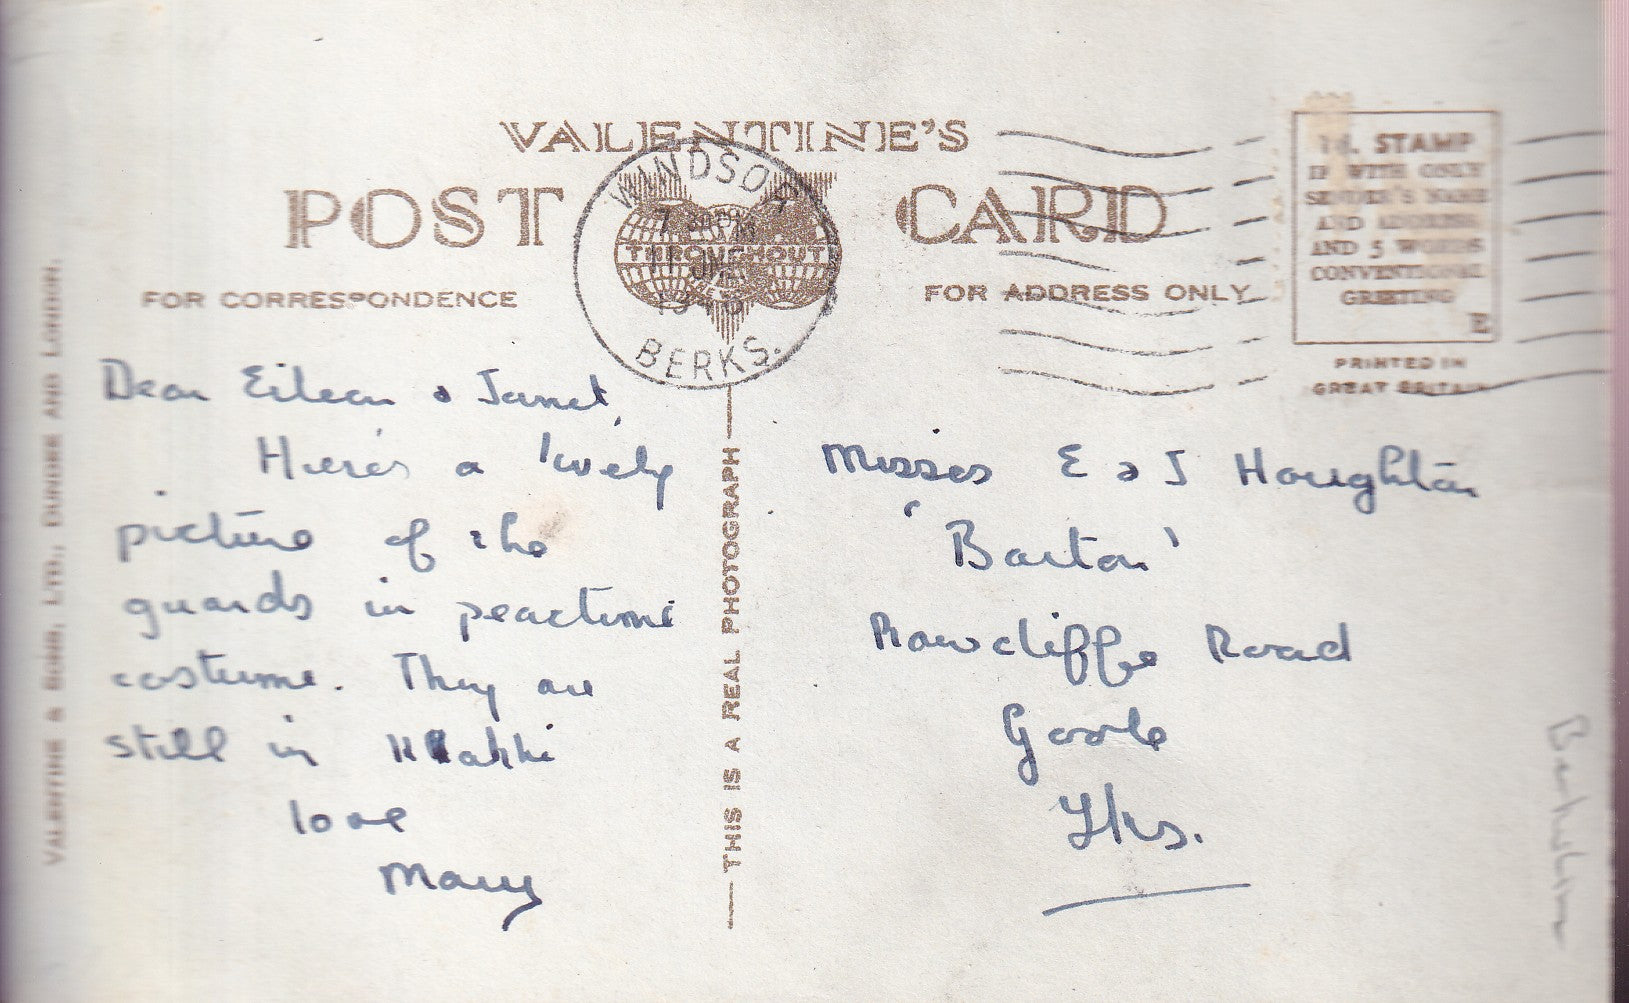 VALENTINE'S
POST CARD
FOR CORRESPONDENCE
FOR ADDRESS ONLY
THROUGHOUT
WINDSOR
BERKS.
11 JNE
1d. STAMP
IF WITH ONLY
SENDER'S NAME
AND ADDRESS
AND 5 WORDS
CONVENTIONAL
GREETING
E
PRINTED IN
GREAT BRITAIN
VALENTINE & SONS, LTD., DUNDEE AND LONDON.
THIS IS A REAL PHOTOGRAPH
Dear Eileen & Janet,
Here's a lovely
picture of the
guards in peacetime
costume. They are
still in Khakhi
love
Mary
Misses E & J Houghton
'Barton'
Rawcliffe Road
Goole
Yks.